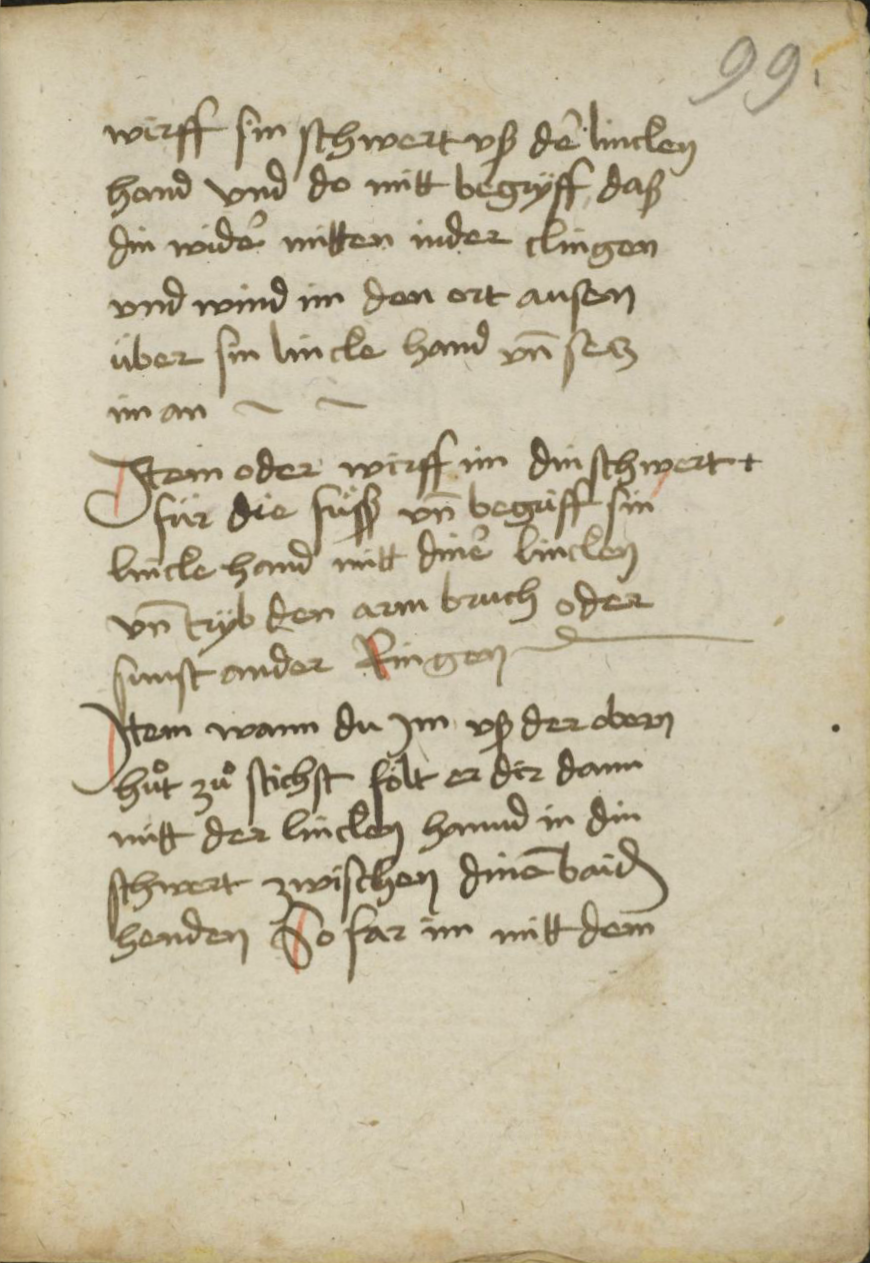 99
wirff sin schwert vß de᷑ linclen
hand vnd do mitt begryff daß
din wide᷑ mitten inder clingen
vnd wind im den ort ausen
über sin lincle hand vn̄ secz
im an ~ ~
Item oder wirff im din schwert +
für die füsß vn̄ begriff sin
lincle hand mitt dine᷑ linclen
vn̄ tryb den arm bruch oder
sunst ander Ringen
Item wann du Im vß der obern
huͦt zuͦ stichst felt er dir dann
mitt der linclen hannd in din
schwert zwischen dinē baid
henden So far im mitt dem